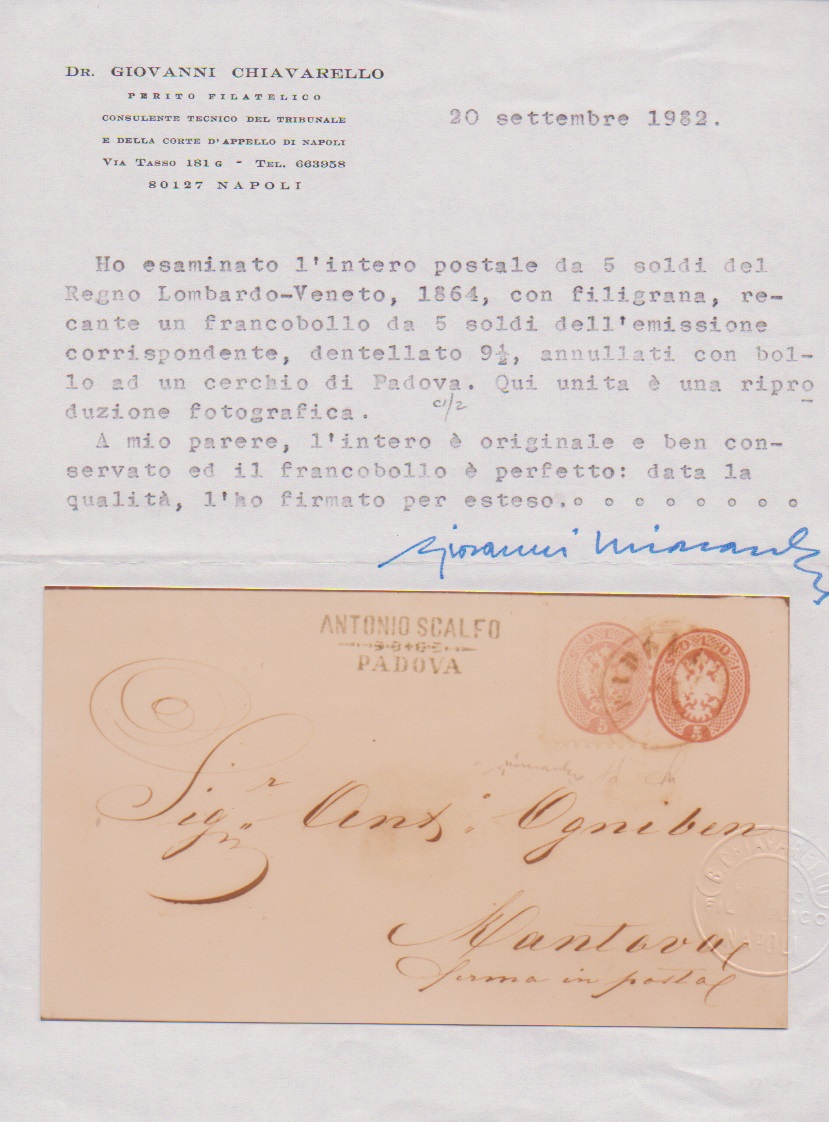 DR. GIOVANNI CHIAVARELLO
PERITO FILATELICO
CONSULENTE TECNICO DEL TRIBUNALE
E DELLA CORTE D'APPELLO DI NAPOLI
VIA TASSO 181 G - TEL. 663958
80127 NAPOLI
20 settembre 1982.
Ho esaminato l'intero postale da 5 soldi del
Regno Lombardo-Veneto, 1864, con filigrana, re-
cante un francobollo da 5 soldi dell'emissione
corrispondente, dentellato 9½, annullati con bol-
lo ad un cerchio di Padova. Qui unita è una ripro
duzione fotografica.
A mio parere, l'intero è originale e ben con-
servato ed il francobollo è perfetto: data la
qualità, l'ho firmato per esteso.
ANTONIO SCALFO
PADOVA
SOLDI
5
SOLDI
5
Sigr Ant. Ogniben
Mantova
ferma in posta
G. CHIAVARELLO
PERITO
FILATELICO
NAPOLI